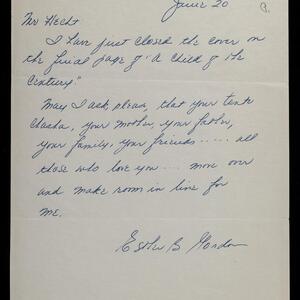 June 20
Mr Hecht
I have just closed the cover on
the final page of "A Child of the
Century."
May I ask, please, that your tante
Chasha, your mother, your father,
your family, your friends ..... all
those who love you.... move over
and make room in line for
me.
Esther B Gordon